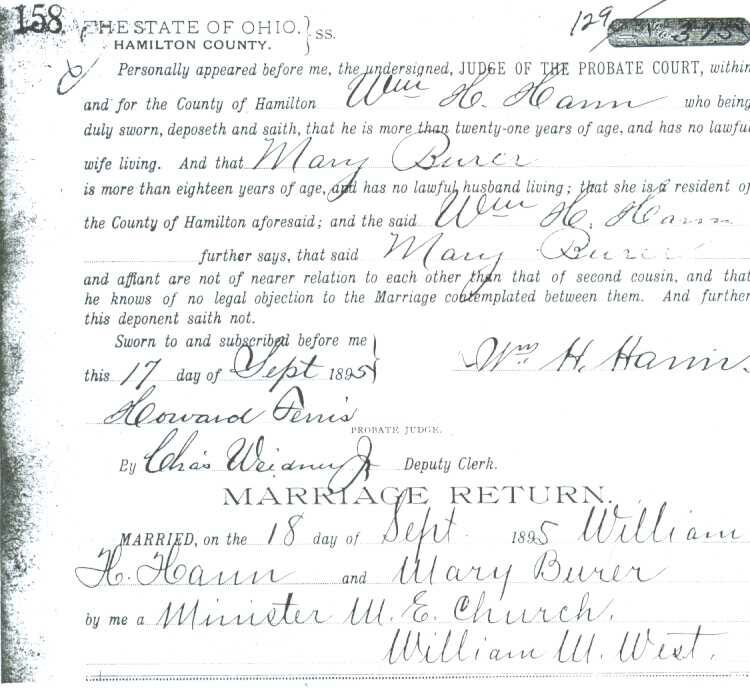 158.
THE STATE OF OHIO, } SS.
HAMILTON COUNTY.
129
No 375
Personally appeared before me, the undersigned, JUDGE OF THE PROBATE COURT, within
and for the County of Hamilton Wm H. Hann who being
duly sworn, deposeth and saith, that he is more than twenty-one years of age, and has no lawful
wife living. And that Mary Burer
is more than eighteen years of age, and has no lawful husband living; that she is a resident of
the County of Hamilton aforesaid; and the said Wm H. Hann
further says, that said Mary Burer
and affiant are not of nearer relation to each other than that of second cousin, and that
he knows of no legal objection to the Marriage contemplated between them. And further
this deponent saith not.
Sworn to and subscribed before me
this 17 day of Sept 1895 } Wm. H. Hann
Howard Ferris
PROBATE JUDGE.
By Chas Weidner Jr Deputy Clerk.
MARRIAGE RETURN.
MARRIED, on the 18 day of Sept. 1895 William
H. Hann and Mary Burer
by me a Minister M. E. Church.
William M. West.